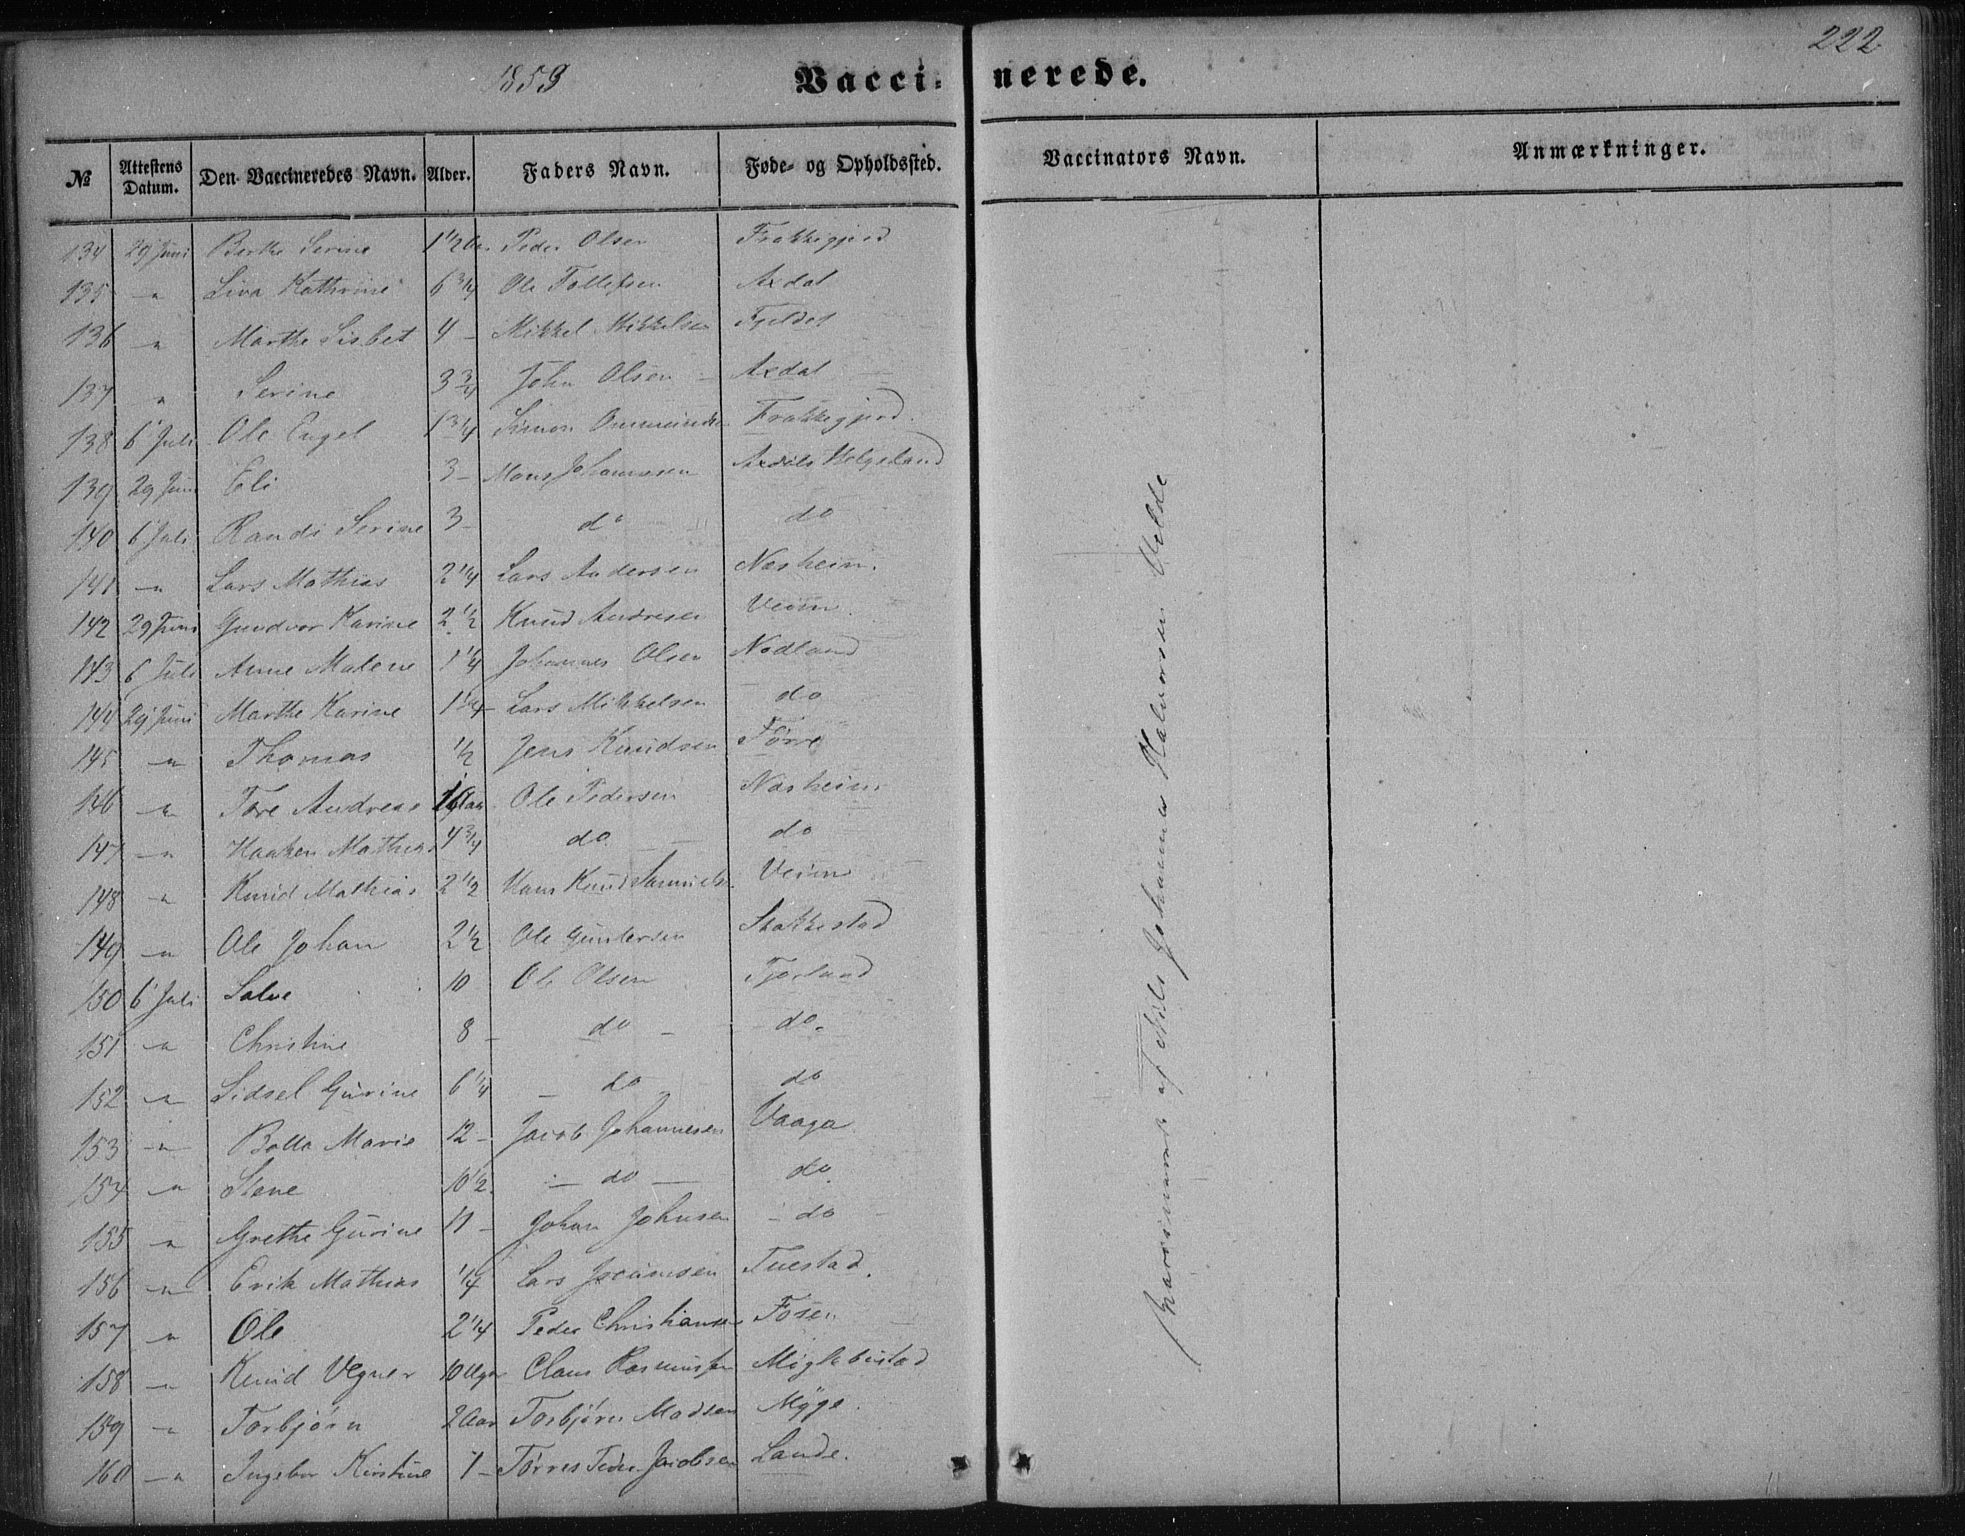 222
1859
Vaccinerede.
№ Attestens Datum. Den Vaccineredes Navn. Alder. Faders Navn. Føde- og Opholdssted. Vaccinators Navn. Anmærkninger.
134 29 Juni Berthe Serine 1 1/2 Aar Peder Olsen Frakkegjerd
135 " Liva Kathrine 6 3/4 Ole Tollefsen Axdal
136 " Marthe Lisbet 4 - Mikkel Mikkelsen Fjeldet
137 " Serine 3 3/4 John Olsen - Axdal -
138 6 Juli Ole Engel 1 3/4 Simon Frakkegjerd.
139 29 Juni Eli 3 - Mons Johannesen Axdals Helgeland
140 6 Juli Randi Serine 3 - do do
141 " Lars Mathias 2 1/4 Lars Andersen Nesheim.
142 29 Juni Gundvor Karine 2 1/2 Knud Andresen Veim.
143 6 Juli Anne Malene 1 1/4 Johannes Olsen Nodland
144 29 Juni Marthe Karine 1 1/4 - Lars Mikkelsen do
145 " Thomas 1/2 Jens Knudsen Førre
146 " Tore Andreas Aar Ole Pedersen Nesheim
147 " Haaken Mathias 4 3/4 do - do
148 " Knud Mathias 2 1/2 Hans Knud Samuels. Veim
149 " Ole Johan 2 1/2 Ole Guntersen Stakkestad
150 6 Juli Salve 10 Ole Olsen Tjorland
151 " Christine 8 - do - do.
152 " Sidsel Gurine 6 1/4 - do do
153 " Bolla Marie 12 - Jacob Johannesen Vaaga
154 " Stene 10 1/2 - do - do.
155 " Grethe Gurine 11 - Johan Johnsen - do -
156 " Erik Mathias 1/4 Lars Tuestad.
157 " Ole 2 1/4 Peder Christiansen Fosen
158 " Knud Vegner 10 Uger Claus Rasmussen Miglebustad
159 " Torbjørn 2 Aar Torbjørn Madsen Myge.
160 " Ingebor Kirstine 7 - Tørres Peder Jacobsen Lande.
af Nils Johannes Halvorsen Velde